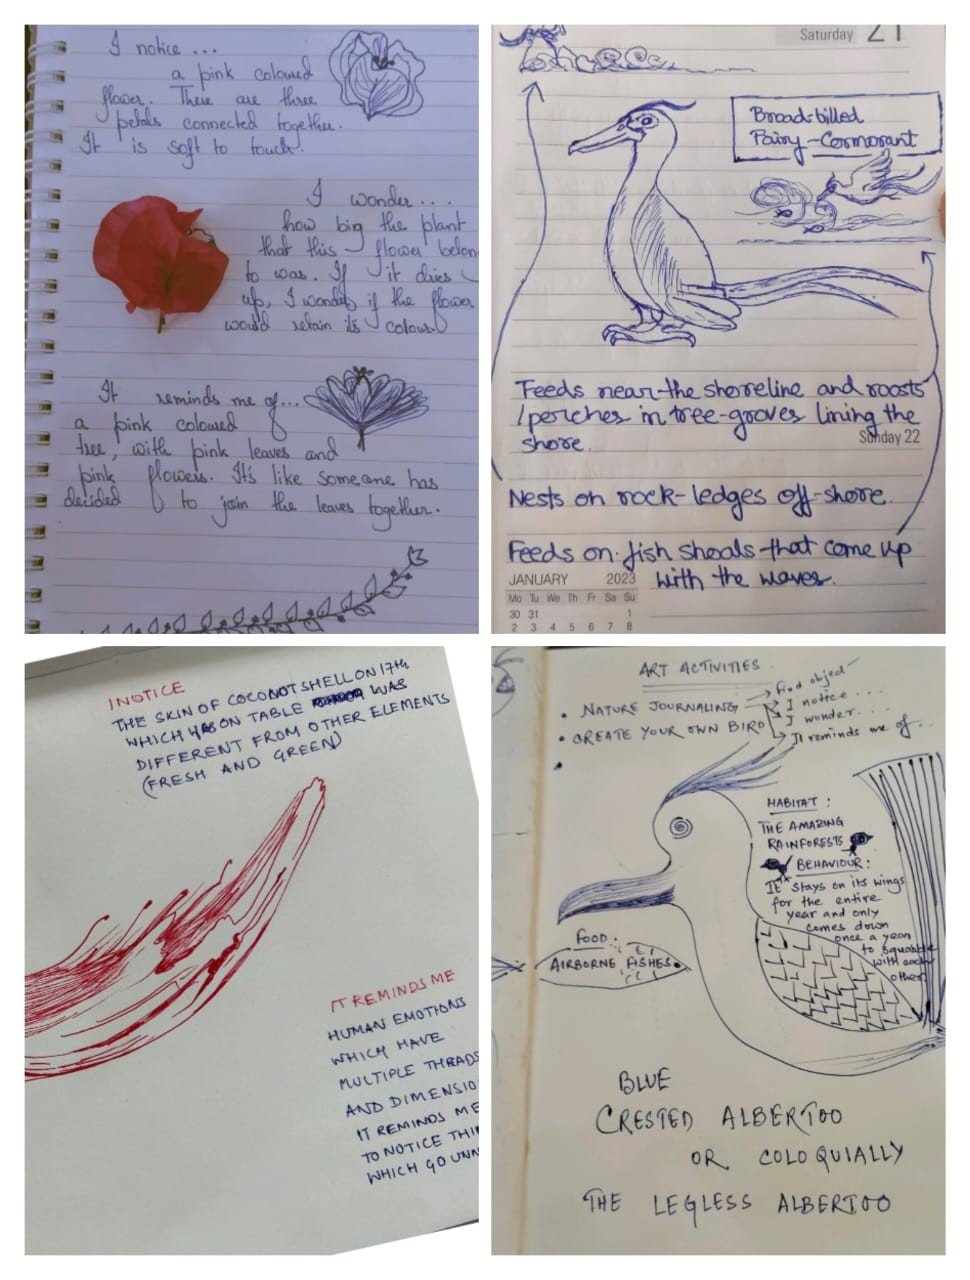 I notice ...
a pink coloured
flower. There are three
petals connected together.
It is soft to touch.
I wonder....
how big the plant
that this flower belon
to was. If it dries
up, I wonder if the flower
would retain its colour.
It reminds me of...
a pink coloured
tree, with pink leaves and
pink flowers. It's like someone has
decided to join the leaves together.
Saturday 21
Broad-billed
Fairy-Cormorant
Feeds near the shoreline and roosts
/perches in tree-groves lining the
shore.
Sunday 22
Nests on rock-ledges off-shore.
Feeds on fish shoals that come up
with the waves.
JANUARY 2023
Mo Tu We Th Fr Sa Su
30 31 1
2 3 4 5 6 7 8
I NOTICE
THE SKIN OF COCONOT SHELL ON 17th
WHICH WAS ON TABLE WAS
DIFFERENT FROM OTHER ELEMENTS
(FRESH AND GREEN)
IT REMINDS ME
HUMAN EMOTIONS
WHICH HAVE
MULTIPLE THRADS
AND DIMENSIO
IT REMINDS ME
TO NOTICE THI
WHICH GO UNN
ART ACTIVITIES.
• NATURE JOURNALING → find object
→ I notice....
→ I wonder....
→ It reminds me of....
• CREATE YOUR OWN BIRD
HABITAT:
THE AMAZING
RAINFORESTS
BEHAVIOUR:
IT stays on its wings
for the entire
year and only
comes down
once a year
to squabble
with each
other
FOOD:
AIRBORNE FISHES.
BLUE
CRESTED ALBERTOO
OR COLOQUIALLY
THE LEGLESS ALBERTOO